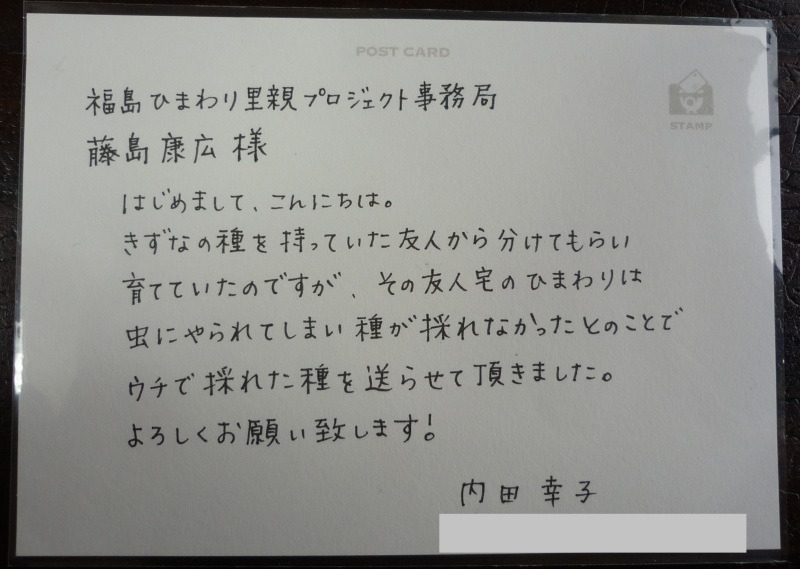 POST CARD
STAMP
福島ひまわり里親プロジェクト事務局
藤島康広様
はじめまして、こんにちは。
きずなの種を持っていた友人から分けてもらい
育てていたのですが、その友人宅のひまわりは
虫にやられてしまい種が採れなかったとのことで
ウチで採れた種を送らせて頂きました。
よろしくお願い致します!
内田幸子